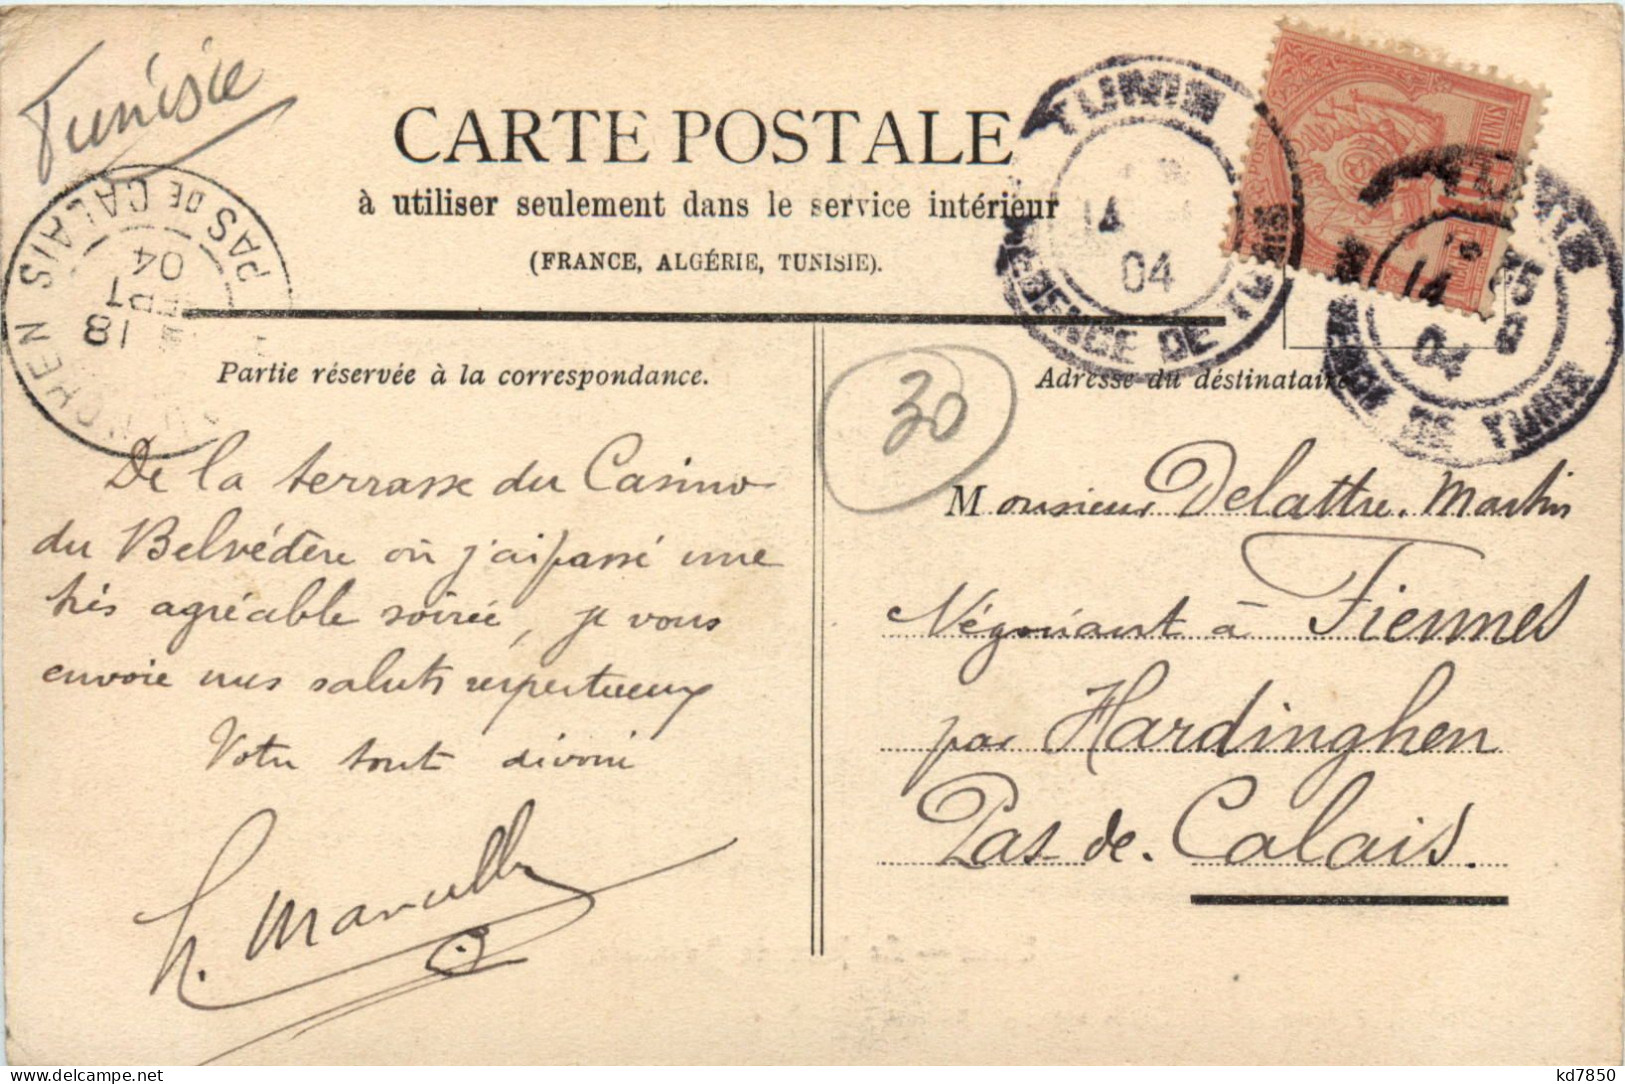 Tunisie
CARTE POSTALE
à utiliser seulement dans le service intérieur
(FRANCE, ALGÉRIE, TUNISIE).
TUNIS
14
04
RÉGENCE DE TUNIS
14
04
PAS DE CALAIS
18
SEPT
04
Partie réservée à la correspondance.
Adresse du déstinataire
30
De la terrasse du Casino
du Belvédère où j'ai passé une
très agréable soirée, je vous
envoie mes saluts respectueux
Votre tout dévoué
Monsieur Delattre-Martin
Négociant à Fiennes
par Hardinghen
Pas-de-Calais.
kd7850